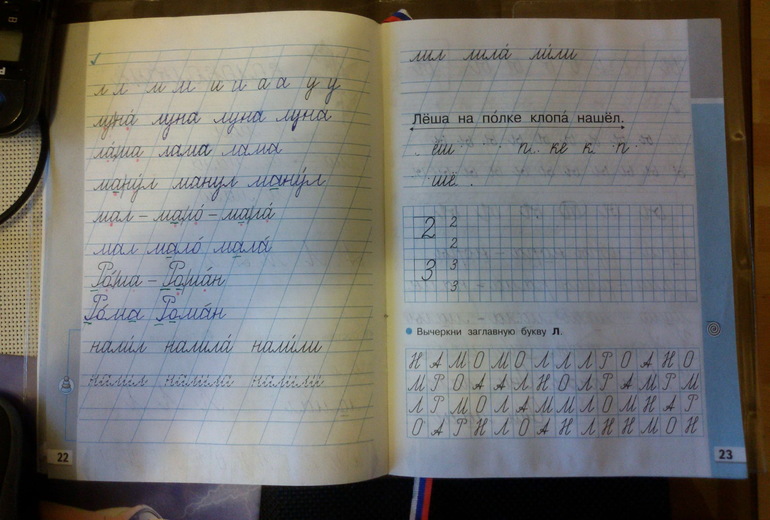 л л м м и и а а у у
луна́ луна луна луна
ла́ма лама лама
ману́л манул ману́л
мал – мало́ – мала́
мал мало́ мала́
Ро́ма – Рома́н
Ро́ма Рома́н
нали́л налила́ нали́ли
нали́л налила нали́ли
22
лил лила́ ли́ли
Лёша на по́лке клопа́ нашёл.
. ёш . . п . ке к . п .
. шё .
2 2
2
3 3
3
Вычеркни заглавную букву Л.
Н А М О М О Л Л Л Р О А Н О
М Р О А А Л Н О Л Р А М Р М
Л Р М О Л А М М Л О М Н А Р
О А Р Н Л О А Н Л Н Н М О Н
23